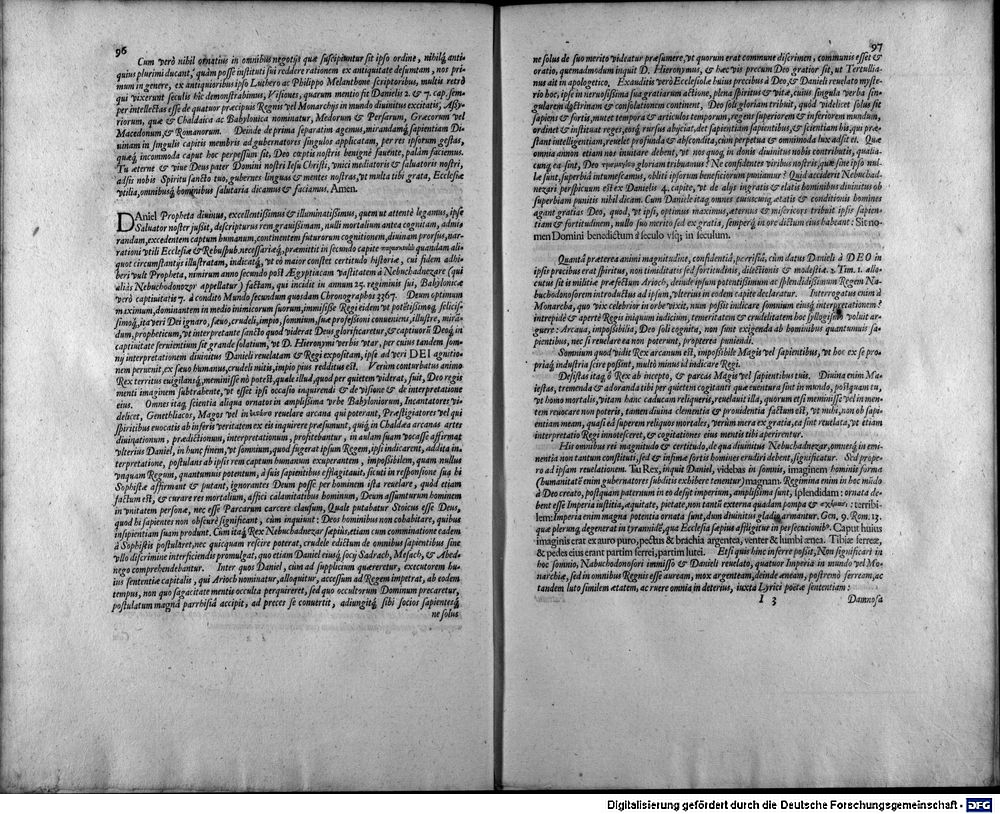 96
Cum verò nihil ornatius in omnibus negotijs quæ suscipiuntur sit ipso ordine, nihilq́; anti-
quius plurimi ducant, quàm posse instituti sui reddere rationem ex antiquitate desumtam, nos pri-
mum in genere, ex antiquioribus ipso Luthero ac Philippo Melanthone scriptoribus, multa retrò
qui vixerunt secula hîc demonstrabimus, Visiones, quarum mentio fit Danielis 2. & 7. cap. sem-
per intellectas esse de quatuor præcipuis Regnis vel Monarchijs in mundo diuinitus excitatis, Assy-
riorum, quæ & Chaldaica ac Babylonica nominatur, Medorum & Persarum, Græcorum vel
Macedonum, & Romanorum. Deinde de prima separatim agemus, mirandamq́; sapientiam Di-
uinam in singulis capitis membris ad gubernatores singulos applicatam, per res ipsorum gestas,
quæq́; incommoda caput hoc perpessum sit, Deo cœptis nostris benignè fauente, palàm faciemus.
Tu æterne & viue Deus pater Domini nostri Iesu Christi, vnici mediatoris & saluatoris nostri,
adsis nobis Spiritu sancto tuo, gubernes linguas & mentes nostras, vt multa tibi grata, Ecclesiæ
vtilia, omnibusq́; hominibus salutaria dicamus & faciamus. Amen.
DAniel Propheta diuinus, excellentissimus & illuminatissimus, quem ut attentè legamus, ipse
Saluator noster jussit, descripturus rem grauissimam, nulli mortalium antea cognitam, admi-
randam, excedentem captum humanum, continentem futurorum cognitionem, diuinam prorsus, nar-
rationi vtili Ecclesiæ & Rebuspub. necessariæq́;, præmittit in secundo capite quandam ali-
quot circumstantijs illustratam, indicatq́;, vt eò maior constet certitudo historiæ, cui fidem adhi-
beri vult Propheta, nimirum anno secundo post Ægyptiacam vastitatem à Nebuchadnezare (qui
aliàs Nebuchodonozor appellatur) factam, qui incidit in annum 25. regiminis sui, Babylonicæ
verò captiuitatis 7. à condito Mundo secundum quosdam Chronographos 3367. Deum optimum
maximum, dominantem in medio inimicorum suorum, immisisse Regi eidem vt potentissimoq́; felicis-
simoq́;, ita veri Dei ignaro, sæuo, crudeli, impio, somnium, suæ professioni conueniens, illustre, mirā-
dum, propheticum, vt interpretante sancto quod viderat Deus glorificaretur, & captiuorū Deoq́; in
captiuitate seruientium sit grande solatium, vt D. Hieronymi verbis vtar, per cuius tandem som-
ny interpretationem diuinitus Danieli reuelatam & Regi expositam, ipse ad veri DEI agnitio-
nem peruenit, ex sæuo humanus, crudeli mitis, impio pius redditus est. Verùm conturbatus animo
Rex territus euigilansq́;, meminisse nō potest, quale illud, quod per quietem viderat, fuit, Deo regis
menti imaginem subtrahente, vt esset ipsi occasio inquirendi & de visione & de interpretatione
eius. Omnes itaq́; scientia aliqua ornatos in amplissima vrbe Babyloniorum, Incantatores vi-
delicet, Genethliacos, Magos vel in reuelare arcana qui poterant, Præstigiatores vel qui
spiritibus euocatis ab inferis veritatem ex eis inquirere præsumunt, quiq́; in Chaldæa arcanas artes
diuinationum, prædictionum, interpretationum, profitebantur, in aulam suam vocasse affirmat
vlterius Daniel, in hunc finem, vt somnium, quod fugerat ipsum Regem, ipsi indicarent, addita in-
terpretatione, postulans ab ipsis rem captum humanum exuperantem, impossibilem, quam nullus
vnquam Regum, quantumuis potentum, à suis sapientibus efflagitauit, sicut in responsione sua hi
Sophistæ affirmant & putant, ignorantes Deum posse per hominem ista reuelare, quòd etiam
factum est, & curare res mortalium, affici calamitatibus hominum, Deum assumturum hominem
in vnitatem personæ, nec esse Parcarum carcere clausum, Quale putabatur Stoicus esse Deus,
quod hi sapientes non obscurè significant, cùm inquiunt: Deos hominibus non cohabitare, quibus
insipientiam suam produnt. Cum itaq́; Rex Nebuchadnezar sæpius, etiam cum comminatione eadem
à Sophistis postularet, nec quicquam rescire poterat, crudele edictum de omnibus sapientibus sine
vllo discrimine interficiendis promulgat, quo etiam Daniel eiusq́; socij Sadrach, Mesach, & Abed-
nego comprehendebantur. Inter quos Daniel, cùm ad supplicium quæreretur, executorem hu-
ius sententiæ capitalis, qui Arioch nominatur, alloquitur, accessum ad Regem impetrat, ab eodem
tempus, non quo sagacitate mentis occulta perquireret, sed quo occultorum Dominum precaretur,
postulatum magna parrhisia accipit, ad preces se conuertit, adiungitq́; sibi socios sapientesq́;
ne solus
97
ne solus de suo merito videatur præsumere, vt quorum erat commune discrimen, communis esset &
oratio, quemadmodum inquit D. Hieronymus, & hæc vis precum Deo gratior sit, ut Tertullia-
nus ait in apologetico. Exauditis verò Ecclesiolæ huius precibus à Deo, & Danieli reuelato myste-
rio hoc, ipse in neruosissima sua gratiarum actione, plena spiritus & vitæ, cuius singula verba sin-
gularem doctrinam & consolationem continent, Deo soli gloriam tribuit, quòd videlicet solus sit
sapiens & fortis, mutet tempora & articulos temporum, regens superiorem & inferiorem mundum,
ordinet & instituat reges, eosq́; rursus abijciat, det sapientiam sapientibus, & scientiam his, qui præ-
stant intelligentiam, reuelet profunda & abscondita, cùm perpetua & omnimoda lux adsit ei. Quæ
omnia omen etiam nos inuitare debent, vt nos quoq́; in donis diuinitus nobis contributis, quatia-
cunq́; ea sint, Deo gloriam tribuamus? Ne confidentes viribus nostris, quæ sine ipso nul-
læ sunt, superbiâ intumescamus, obliti ipsorum beneficiorum puniamur? Quid acciderit Nebuchad-
nezari perspicuum est ex Danielis 4. capite, vt de alijs ingratis & elatis hominibus diuinitus ob
superbiam punitis nihil dicam. Cum Daniele itaq́; omnes cuiuscunq́; ætatis & conditionis homines
agant gratias Deo, quòd, vt ipsi, optimus maximus, æternus & misericors tribuit ipsis sapien-
tiam & fortitudinem, nullo suo merito sed ex gratia, semperq́; in ore dictum eius habeant: Sit no-
men Domini benedictum à seculo vsq́; in seculum.
Quantâ præterea animi magnitudine, confidentiâ, perrisiâ, cùm datus Danieli à DEO in
ipsis precibus erat spiritus, non timiditatis sed fortitudinis, dilectionis & modestiæ. 2. Tim. 1. allo-
cutus sit is militiæ præfectum Arioch, deinde ipsum potentissimum ac splendidissimum Regem Na-
buchodonosorem introductus ad ipsum, vlterius in eodem capite declaratur. Interrogatus enim à
Monarcha, quo vix celebrior in orbe vixit, num possit indicare somnium eiusq́; interpretationem?
intrepidè & apertè Regis iniquum indicium, temeritatem & crudelitatem hoc syllogismo voluit ar-
guere: Arcana, impossibilia, Deo soli cognita, non sunt exigenda ab hominibus quantumuis sa-
pientibus, nec si reuelare ea non poterunt, propterea puniendi.
Somnium quod vidit Rex arcanum est, impossibile Magis vel sapientibus, vt hoc ex se pro-
priaq́; industria scire possint, multò minus id indicare Regi.
Desistas itaq́; ô Rex ab incepto, & parcas Magis vel sapientibus tuis. Diuina enim Ma-
iestas, tremenda & adoranda tibi per quietem cogitanti quæ euentura sint in mundo, postquam tu,
vt homo mortalis, vitam hanc caducam reliqueris, reuelauit illa, quorum etsi meminisse vel in men-
tem reuocare non poteris, tamen diuina clementia & prouidentia factum est, vt mihi, non ob sapi-
entiam meam, quasi eâ superem reliquos mortales, verùm mera ex gratia, ea sint reuelata, vt etiam
interpretatio Regi innotesceret, & cogitationes eius mentis tibi aperirentur.
His omnibus rei magnitudo & certitudo, de qua diuinitus Nebuchadnezar, omnesq́; in emi-
nentia non tantum constituti, sed & infimæ sortis homines erudiri debent, significatur. Sed prope-
ro ad ipsam reuelationem. Tu Rex, inquit Daniel, videbas in somnis, imaginem hominis forma
(humanitatē enim gubernatores subditis exhibere tenentur) magnam. Regimina enim in hoc mūdo
à Deo creato, postquam paternum in eo desijt imperium, amplissima sunt, splendidam: ornata de-
bent esse Imperia iustitia, æquitate, pietate, non tantū externa quadam pompa & terribi-
lem: Imperia enim magna potentia ornata sunt, dum diuinitus gladio armantur. Gen. 9. Rom. 13.
quæ plerunq́; degenerat in tyrannidē, qua Ecclesia sæpius affligitur in persecutionibꝰ. Caput huius
imaginis erat ex auro puro, pectus & brachia argentea, venter & lumbi ænea. Tibiæ ferreæ,
& pedes eius erant partim ferrei, partim lutei. Etsi quis hinc inferre posset, Non significari in
hoc somnio, Nabuchodonosori immisso & Danieli reuelato, quatuor Imperia in mundo vel Mo-
narchiæ, sed in omnibus Regnis esse auream, mox argenteam, deinde æneam, postremò ferream, ac
tandem luto similem ætatem, ac ruere omnia in deterius, iuxta Lyrici poëtæ sententiam:
I 3 Damnosa
Digitalisierung gefördert durch die Deutsche Forschungsgemeinschaft - DFG